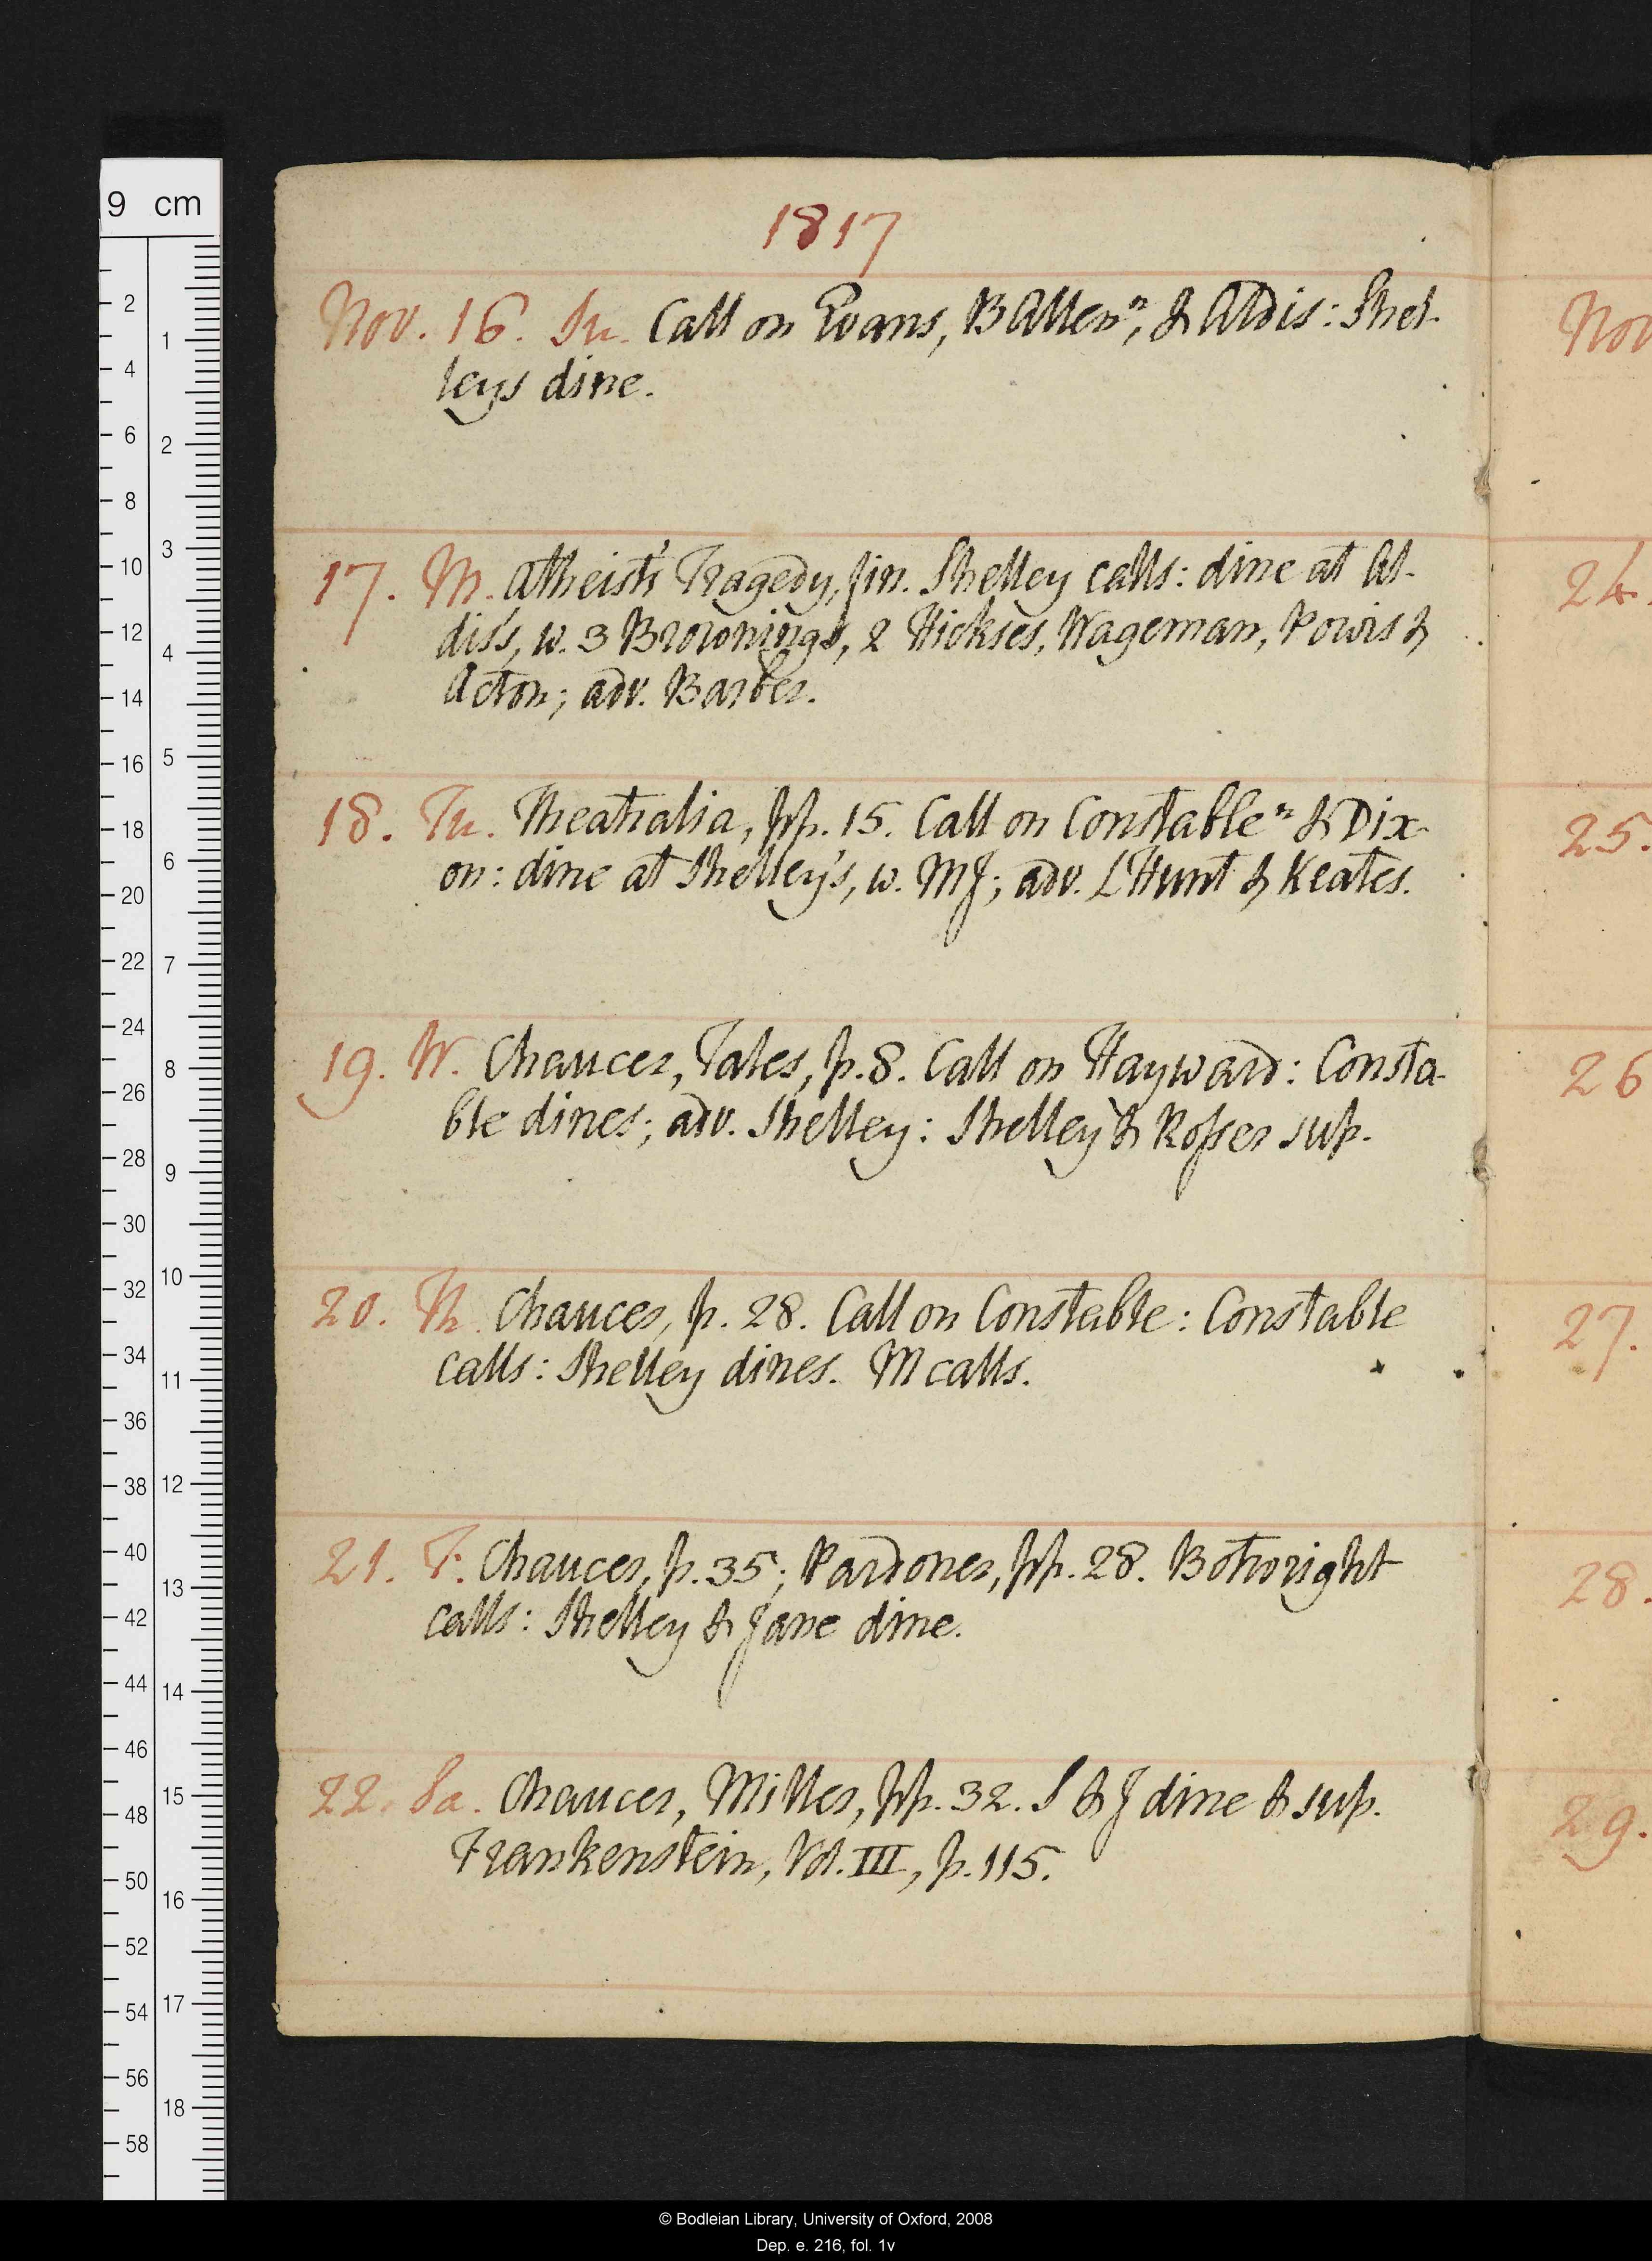 1817
Nov. 16. Su. Call on Evans, B Allen n, & Aldis: Shel-
leys dine.
17. M. Atheist's Tragedy, fin. Shelley calls: dine at Al-
dis's, w. 3 Brownings, 2 Hickses, Wageman, Powis &
Acton; adv. Barber.
18. Tu. Theatralia, pp. 15. Call on Constable n & Dix-
on: dine at Shelley's, w. MJ; adv. L Hunt & Keates.
19. W. Chaucer, Tales, p. 8. Call on Hayward: Consta-
ble dines; adv. Shelley: Shelley & Rosser sup.
20. Th. Chaucer, p. 28. Call on Constable: Constable
calls: Shelley dines. M calls.
21. F. Chaucer, p. 35; Pardoner, pp. 28. Botwright
calls: Shelley & Jane dine.
22. Sa. Chaucer, Miller, pp. 32. S & J dine & sup.
Frankenstein, Vol. III, p. 115.
Nov
24.
25.
26
27.
28.
29.
9 cm
2
4
6
8
10
12
14
16
18
20
22
24
26
28
30
32
34
36
38
40
42
44
46
48
50
52
54
56
58
1
2
3
4
5
6
7
8
9
10
11
12
13
14
15
16
17
18
© Bodleian Library, University of Oxford, 2008
Dep. e. 216, fol. 1v